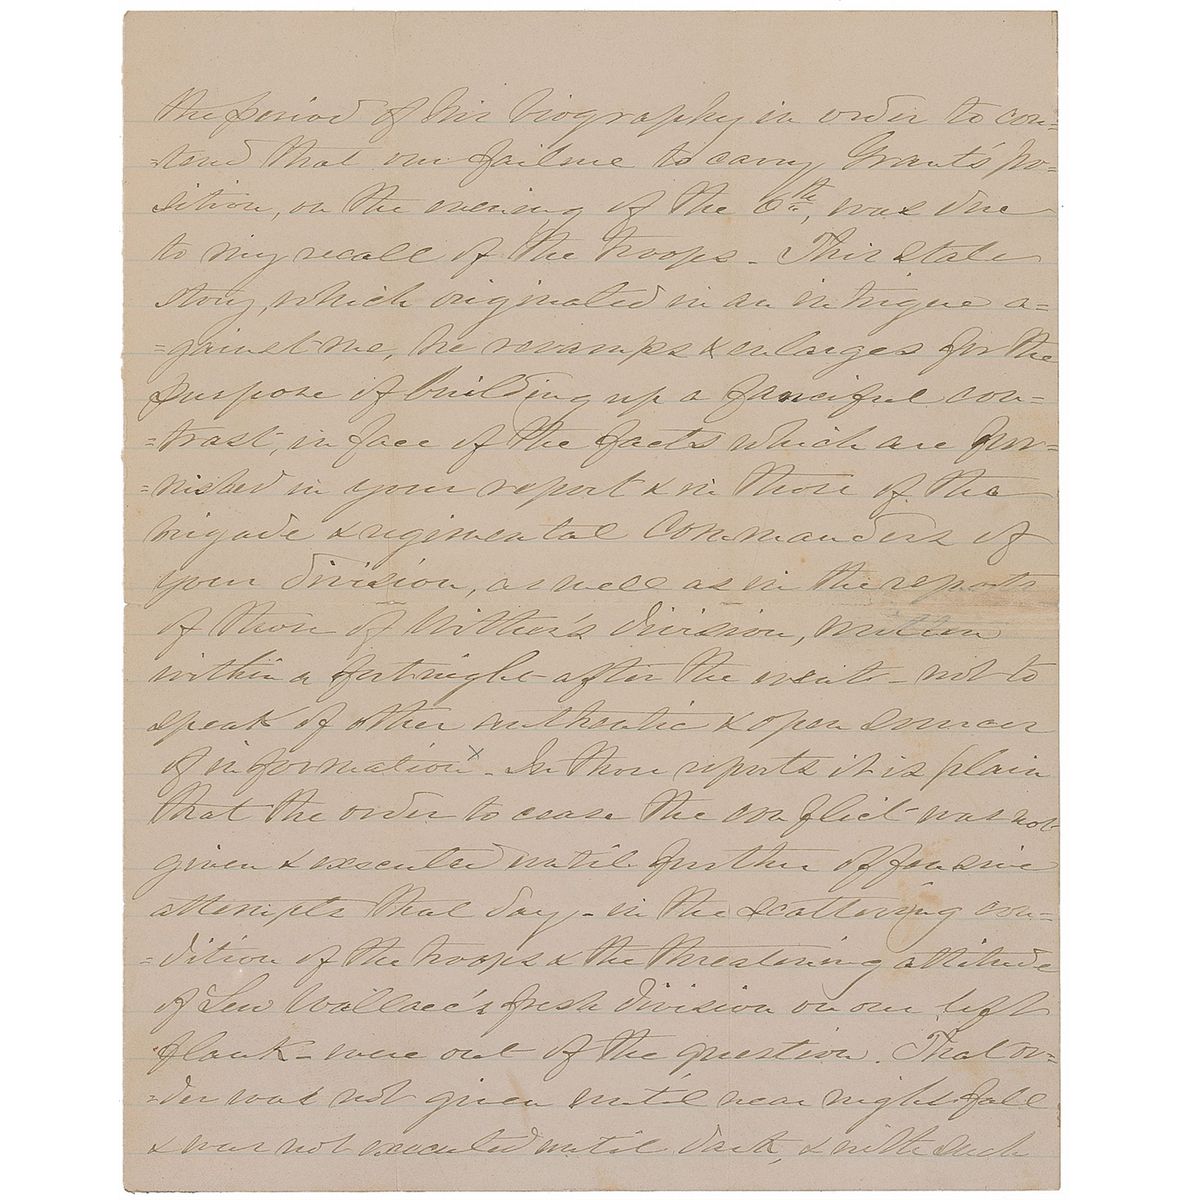 the period of his biography in order to con-
=tend that our failure to carry Grant's po=
sition, on the evening of the 6th, was due
to my recall of the troops - This stale
story, which originated in an intrigue a=
=gainst me, he revamps & enlarges for the
purpose of building up a fanciful con-
=trast, in face of the facts which are fur-
=nished in your report & in those of the
brigade & regimental Commanders of
your division, as well as in the reports
of those of Wither's division, written
within a fortnight after the events - not to
speak of other authentic & open sources
of information x - In those reports it is plain
that the order to cease the conflict was not
given & executed until further offensive
attempts that day - in the scattering con-
=dition of the troops & the threatening attitude
of Lew Wallace's fresh division on our left
flank - were out of the question. That or-
=der was not given until near night-fall
& was not executed until dark, & with such